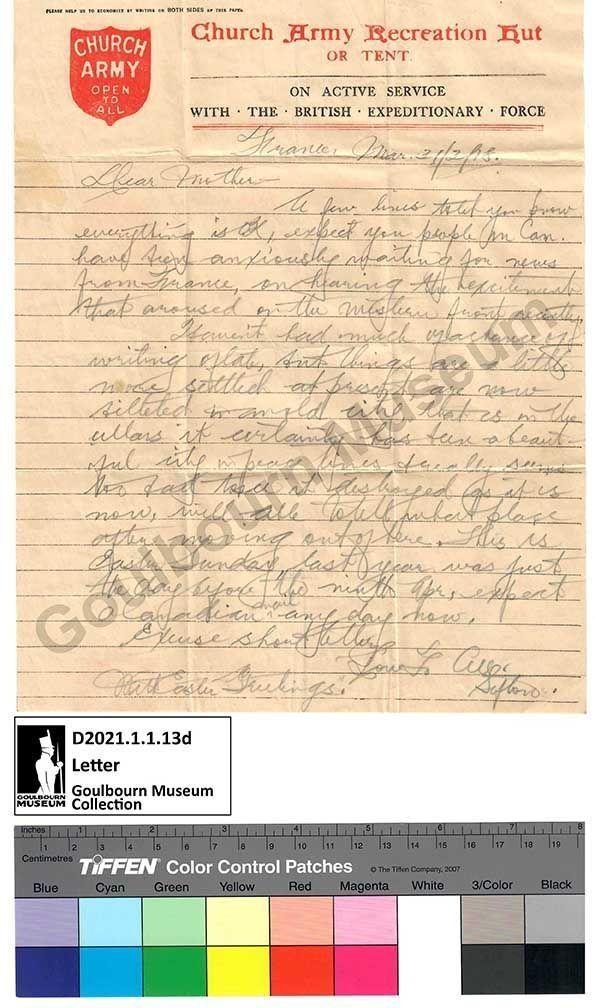 PLEASE HELP US TO ECONOMIZE BY WRITING ON BOTH SIDES OF THIS PAPER.
CHURCH
ARMY
OPEN
TO
ALL
Church Army Recreation Hut
OR TENT.
ON ACTIVE SERVICE
WITH · THE · BRITISH · EXPEDITIONARY · FORCE
France, Mar. 31/
Dear Mother
A few lines to let you know
everything is OK, expect you people in Can.
have been anxiously waiting for news
from France, on hearing the excitement
that aroused on the Western front recently.
Havent had much of a chance of
writing of late, but things are a little
more settled at present are now
billeted in an old city that is on the
cellars it certainly has been a beaut-
iful city in peace times & really seems
too bad to see it destroyed as it is
now, will able to tell what place
after moving out of here. This is
Easter Sunday, last year was just
the day before the ninth Apr, expect
Canadian mail any day now.
Excuse short letter
Love to All
With Easter Greetings. Sifton.
Goulbourn Museum
D2021.1.1.13d
Letter
Goulbourn Museum
Collection
GOULBOURN
MUSEUM
Inches 1 2 3 4 5 6 7 8
Centimetres 1 2 3 4 5 6 7 8 9 10 11 12 13 14 15 16 17 18 19
TIFFEN Color Control Patches © The Tiffen Company, 2007
Blue Cyan Green Yellow Red Magenta White 3/Color Black